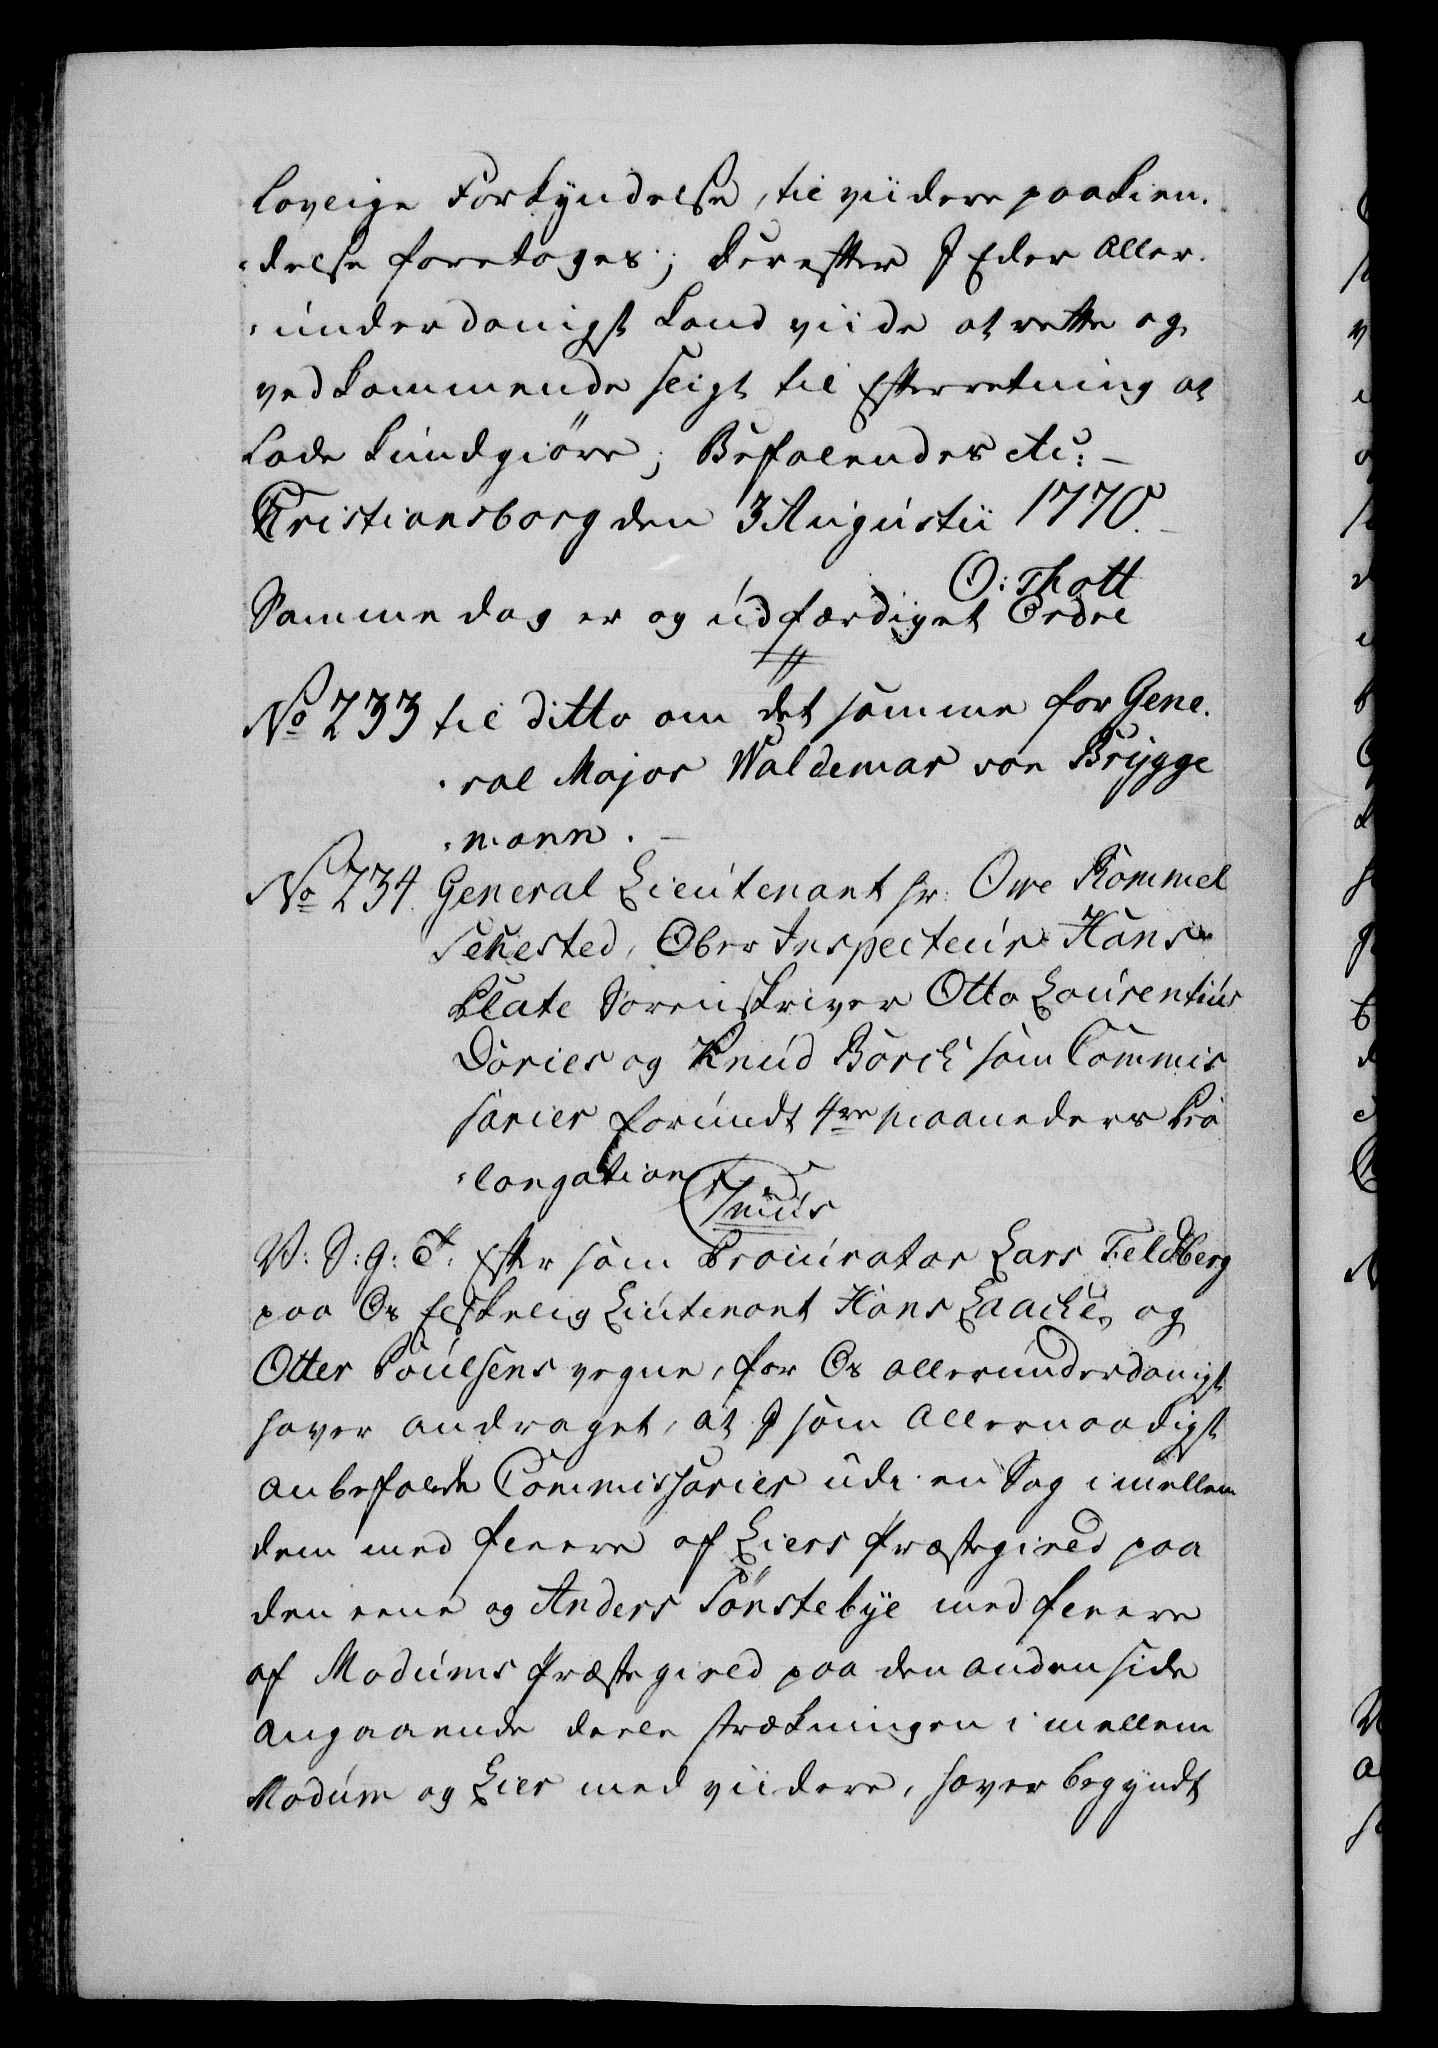 lovlige Forkyndelse, til viidere paakien-
-delse foretages; derefter I Eder Aller-
-underdanigst kand viide at rette og
vedkommende sligt til Efterretning at
lade kundgiøre; Befalendes etc: –
Christiansborg den 3 Augustii 1770.
O: Thott
Samme dag er og udfærdiget Ordre
No 233 til ditto om det samme for Gene-
-ral Major Waldemar von Brygge
-mann. –
No 234. General Lieutenant hr. Owe Rommel
Sehested, Ober Inspecteur Hans
Clate Sorenskriver Otto Laurentius
Dories og Knud Borch som Commis
sarier forundt 4re maaneders Pro
-longation
V: S: G: T. Efter som Procurator Lars Feldberg
paa Os Elskelig Lieutenant Hans Laache, og
Otter Poulsens vegne, for Os allerunderdanigst
haver andraget, at I som Allernaadigst
anbefalede Commissarier udi en Sag imellem
dem med fleere af Liers Præstegield paa
den eene og Anders Tønstebye med fleere
af Modums Præstegield paa den anden side
angaaende deele strækningen imellem
Modum og Lier med viidere, haver begyndt